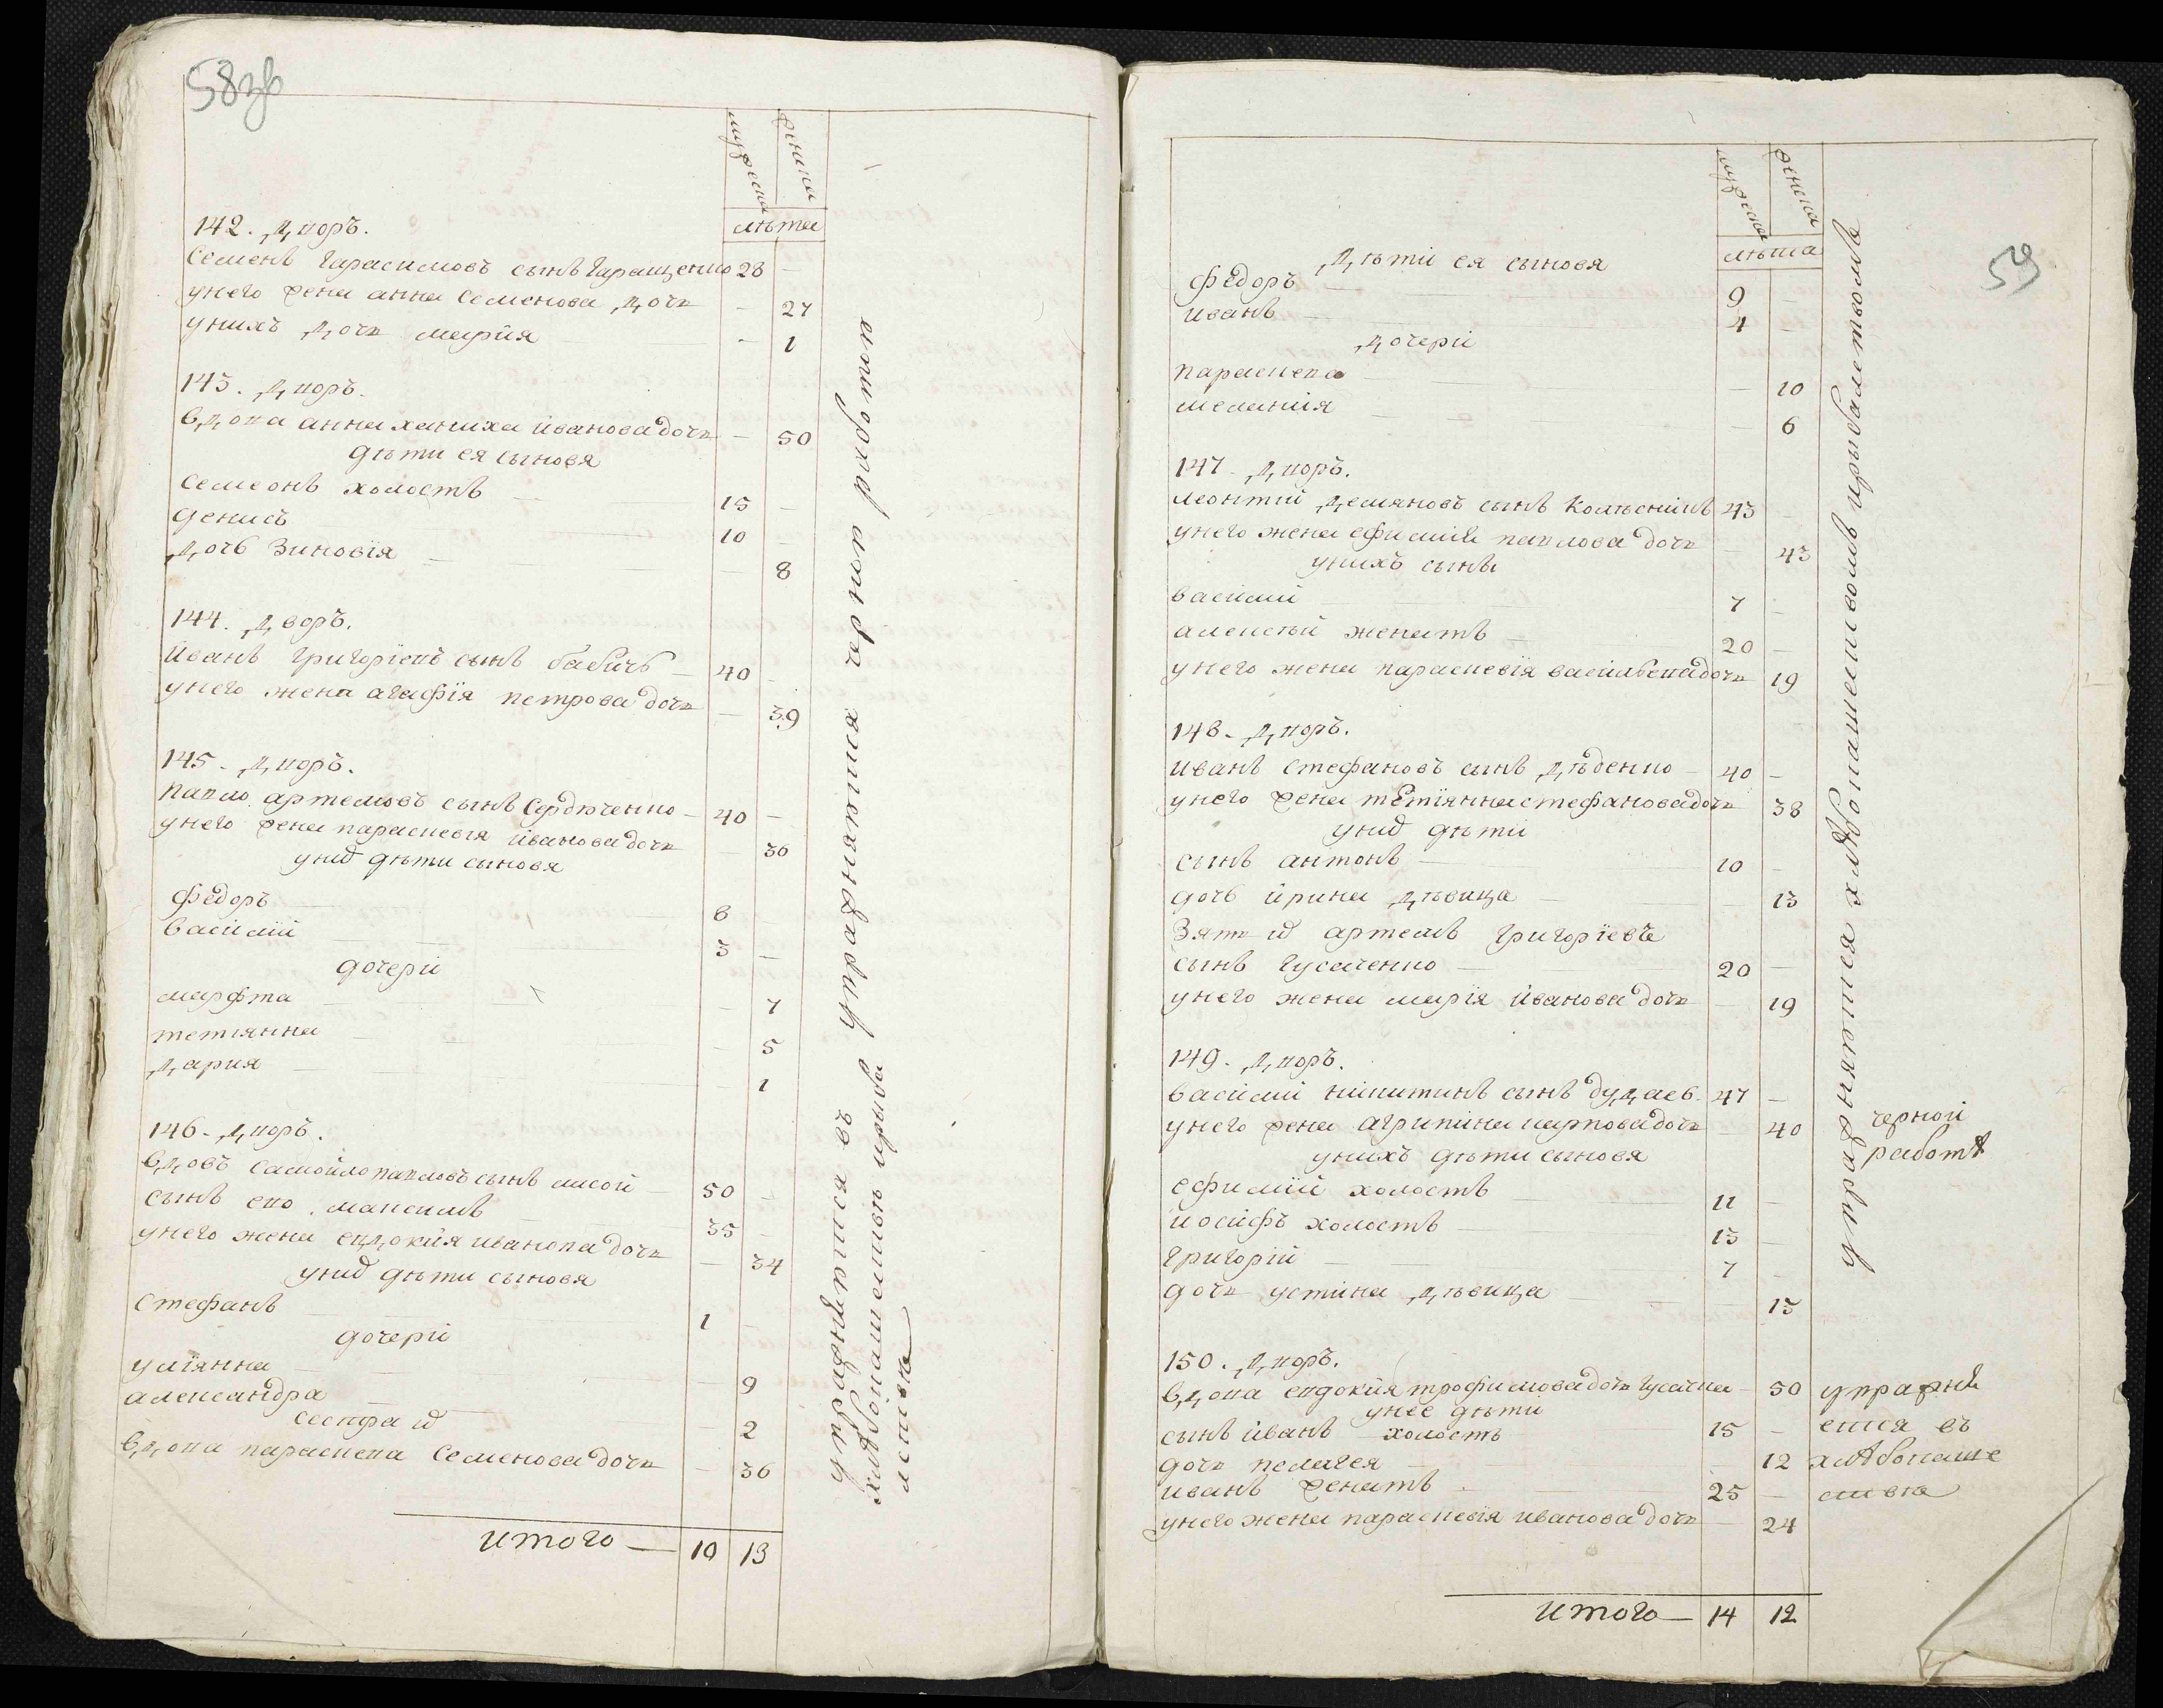 58зв
мужеска
женска
лѣта
142. дворъ.
Семенъ Гарасимовъ сынъ Гаращенко 28 -
унего жена анна Семенова дочь - 27
унихъ дочь марїя - 1
143. дворъ.
вдова анна ханиха иванова дочь - 50
дѣти ея сыновя
Семеонъ холостъ 15 -
денисъ 10 -
дочь Зиновїя - 8
144. дворъ.
иванъ григорїевъ сынъ бабичъ 40 -
унего жена агафїя петрова дочь - 39
145. дворъ.
павло артемовъ сынъ Сердюченко 40 -
унего жена парасковїя иванова дочь - 36
унид дѣти сыновя
федоръ 8
василій 3 -
дочери
марфта - 7
тетіянна - 5
дария - 1
146. дворъ.
вдовъ самойло павловъ сынъ лисой 50 -
сынъ ево максимъ 35
унего жена евдокия иванова дочь - 34
унид дѣти сыновя
стефанъ 1 -
дочери
улїянна 9
александра 2
сестра ид
вдова параскева Семенова дочь - 36
итого 10 13
упражняются черния работои
упражняются въ
хлѣбопашествѣ прыва
лства
59
мужеска
женска
лѣта
дѣти ея сыновя
федоръ 9 -
иванъ 4 -
дочери
параскева - 10
меланія - 6
147. дворъ.
леонтій демяновъ сынъ колѣсникъ 43 -
унего жена ефимия павлова дочь - 43
унихъ сынъ
василій 7 -
алексѣй женатъ 20 -
унего жена парасковїя васильева дочь 19
148. дворъ.
иванъ стефановъ сынъ дѣденко 40 -
унего жена тетїянна стефанова дочь 38
унид дѣти
сынъ антонъ 10 -
дочь ирина дѣвица - 13
Зять ид артемъ григорїевъ
сынъ гусаченко 20 -
унего жена марїя иванова дочь - 19
149. дворъ.
василій никитинъ сынъ дудаев. 47 -
унего жена агрипина карпова дочь - 40
унихъ дѣти сыновя
ефимій холостъ 11 -
иосифъ холостъ 13 -
григорій 7 -
дочь устина дѣвица - 15
150. дворъ.
вдова евдокия трофимова дочь гусачка - 50
унее дѣти
сынъ иванъ холостъ 15 -
дочь пелагея - 12
иванъ женатъ 25 -
унего жена парасковїя иванова дочь - 24
итого 14 12
упражняются хлѣбопашествомъ
черной
работѣ
упражня
ется въ
хлѣбопаше
ства